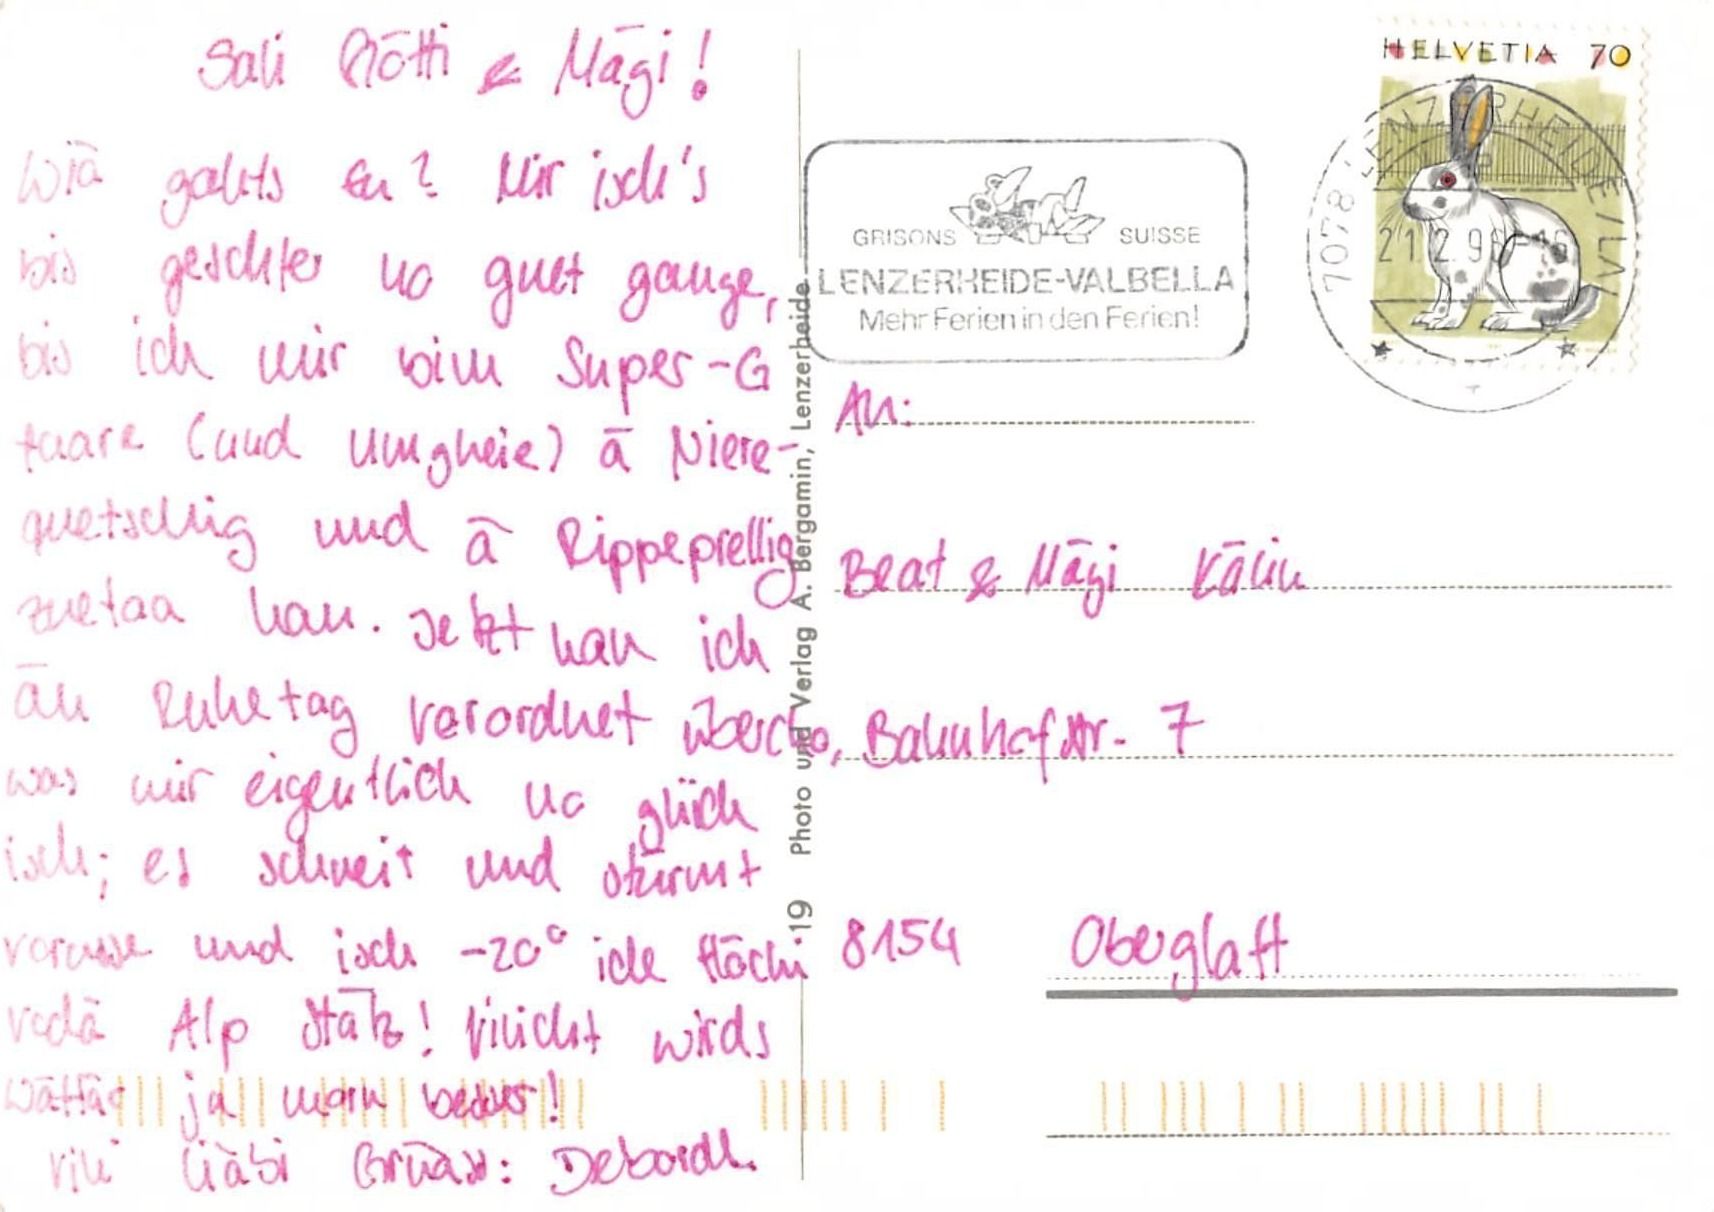 Sali Stötti & Mägi!
Wiä gahts Eu? Mir isch's
bis geschter no guet gange,
bis ich mir bim Super-G
faare (und Umgheie) ä Niere-
quetschig und ä Rippeprellig
zuetaa han. Jetzt han ich
än Ruhetag verordnet übercho,
was mir eigentlich no gliich
isch; es schneit und stürmt
vorusse und isch -20° ide
vodä Alp Stätz! Vilicht wirds
Wättär ja morn besser!
Vili liäbi Grüäss: Deborah.
HELVETIA 70
7078 LENZERHEIDE/LAI
GRISONS SUISSE
LENZERHEIDE-VALBELLA
Mehr Ferien in den Ferien!
An:
Beat & Mägi Kälin
Bahnhofstr. 7
8154 Oberglatt
19 Photo und Verlag A. Bergamin, Lenzerheide